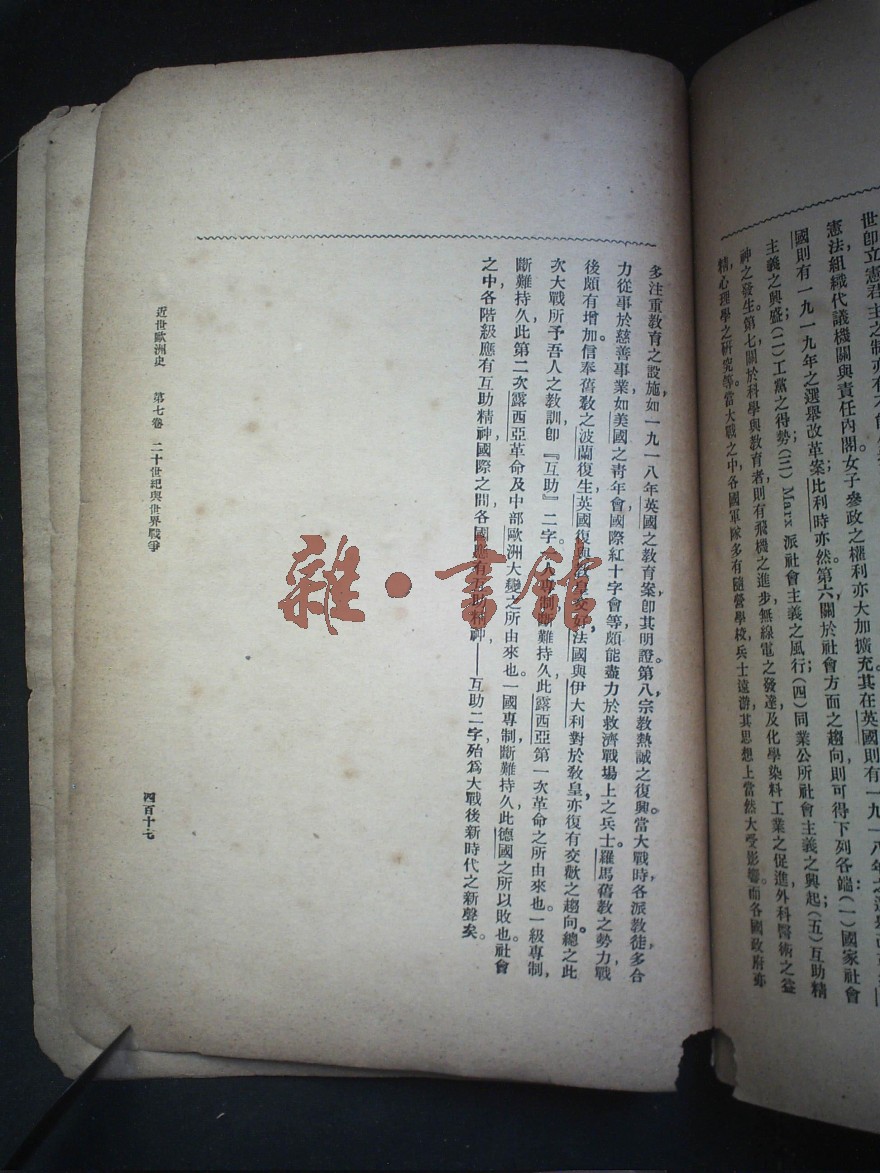 世卽立憲君主之制亦有不
憲法組織代議機關與責任內閣女子參政之權利亦大加擴充其在英國則有一九一八年之選舉
國則有一九一九年之選舉改革案比利時亦然第六關於社會方面之趨向則可得下列各端：(一)國家社會
主義之興盛(二)工黨之得勢(三) Marx 派社會主義之風行(四)同業公所社會主義之興起(五)互助精
神之發生。第七關於科學與教育者則有飛機之進步無線電之發達及化學染料工業之促進外科醫術之益
精，心理學之研究等。當大戰之中，各國軍隊多有隨營學校，兵士遠游，其思想上當然大受影響。而各國政府亦
多注重教育之設施，如一九一八年英國之教育案卽其明證。第八宗教熱誠之復興。當大戰時各派教徒多合
力從事於慈善事業，如美國之靑年會，國際紅十字會等，頗能盡力於救濟戰場上之兵士。羅馬舊教之勢力，戰
後頗有增加。信奉舊教之波蘭復生，英國復與教皇交好，法國與伊大利對於教皇，亦復有交歡之趨向。總之此
次大戰所予吾人之教訓，卽『互助』二字。一人專制，斷難持久，此露西亞第一次革命之所由來也。一級專制，
斷難持久，此第二次露西亞革命及中部歐洲大變之所由來也。一國專制，斷難持久，此德國之所以敗也。社會
之中，各階級應有互助精神，國際之間，各國應有互助精神——互助二字，殆爲大戰後新時代之新聲矣。
近世歐洲史　第七卷　二十世紀與世界戰爭
四百十七
雜·書館